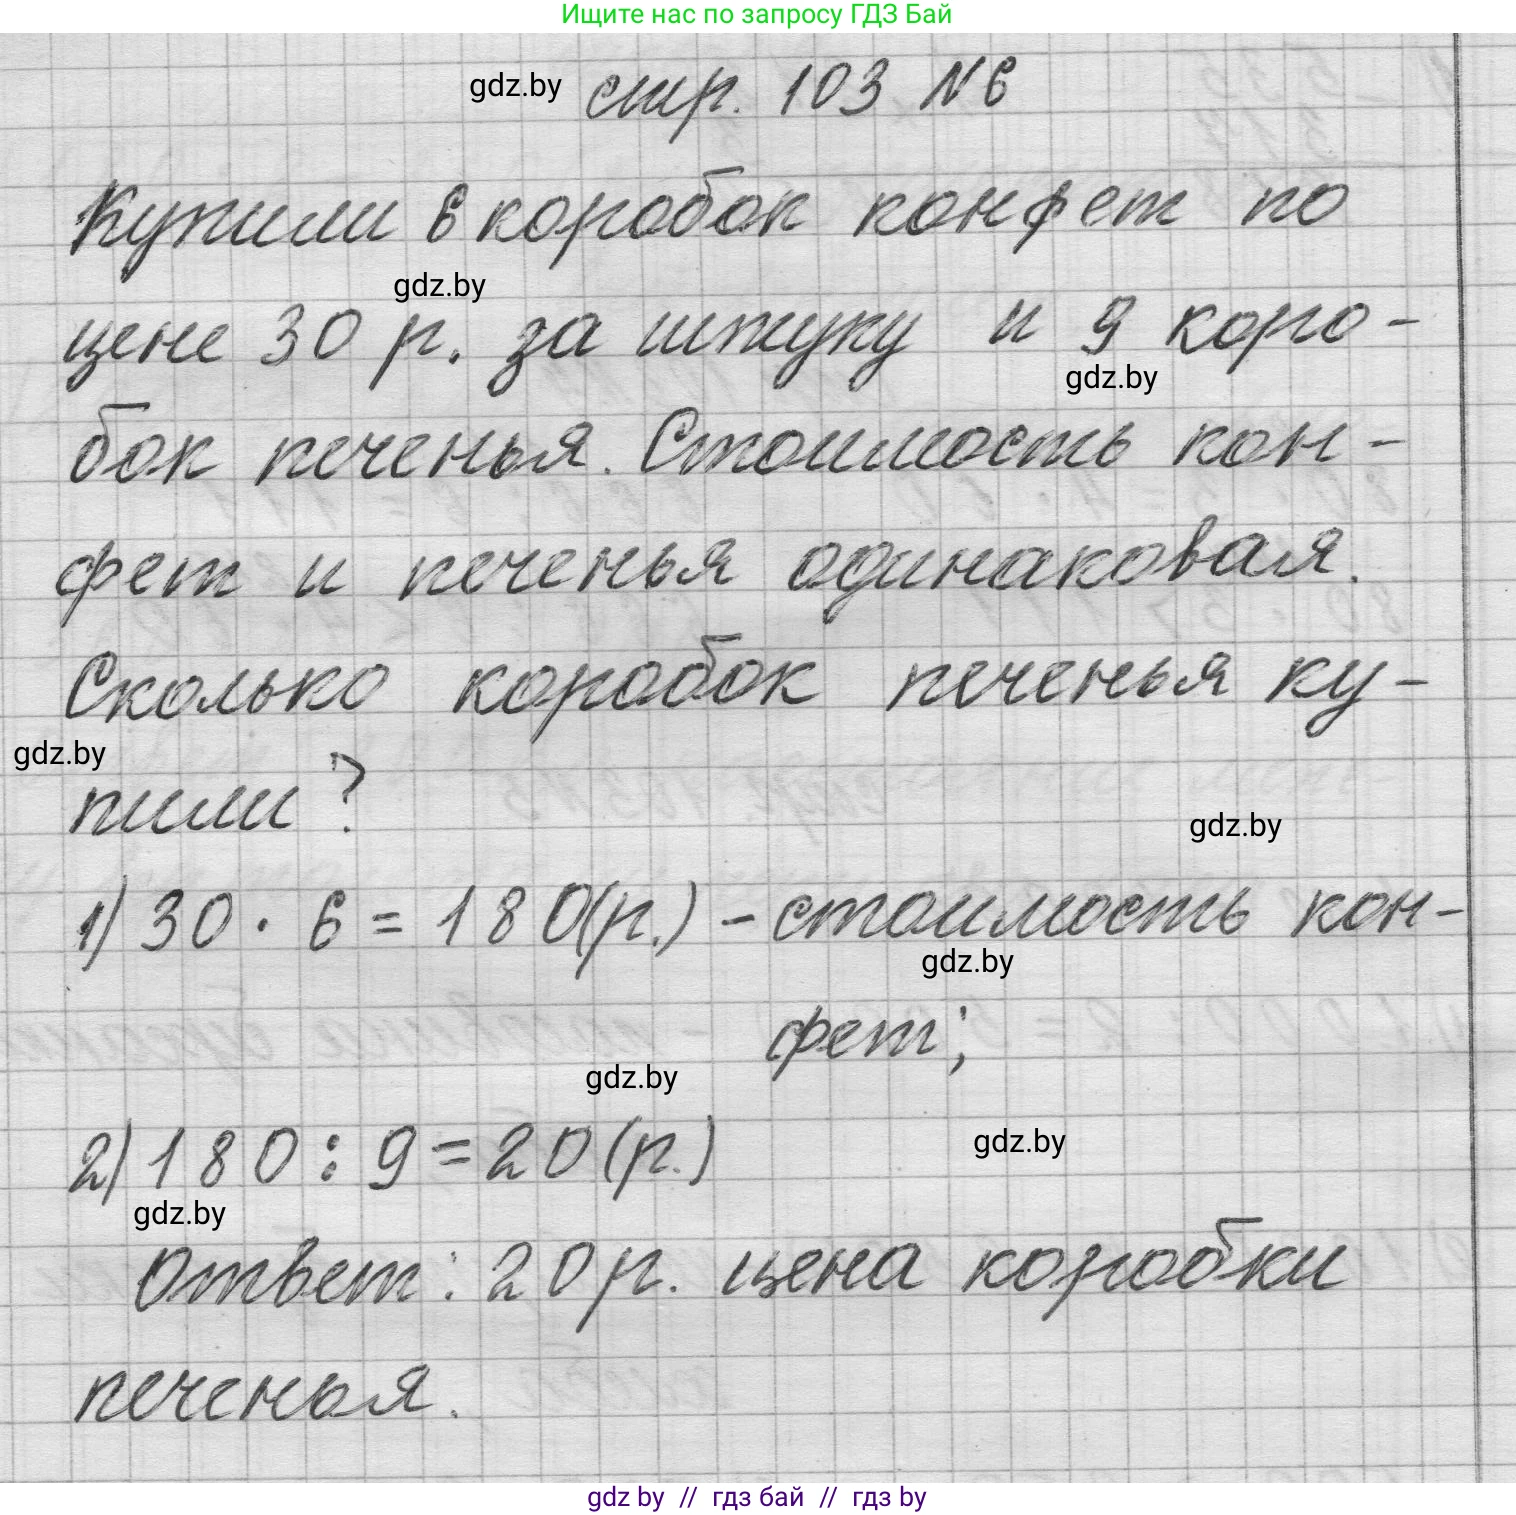 Ищите нас по запросу ГДЗ Бай
gdz.by стр. 103 №6
Купили 6 коробок конфет по
gdz.by
цене 30 р. за штуку и 9 коро-
gdz.by
бок печенья. Стоимость кон-
фет и печенья одинаковая.
Сколько коробок печенья ку-
gdz.by
пили?
gdz.by
1) 30 · 6 = 180(р.) - стоимость кон-
gdz.by
фет;
gdz.by
2) 180 : 9 = 20 (р.)
gdz.by
gdz.by
Ответ: 20 р. цена коробки
печенья.
gdz by // гдз бай // гдз by